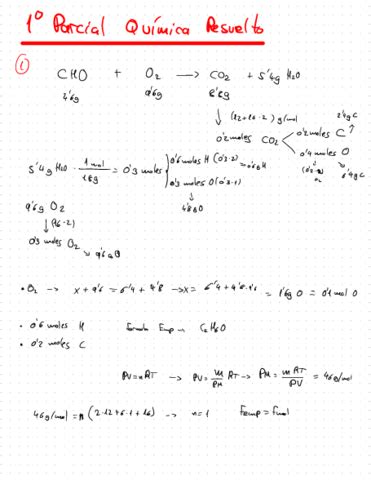 1º Parcial Química Resuelto
①
CHO + O₂ → CO₂ + 5'4g H₂O
9'6g 8'8g
↓ (12+16·2) g/mol
0'2 moles CO₂
0'2 moles C
0'4 moles O
6'4g
5'4g H₂O · 1mol/18g = 0'3 moles
0'6 moles H (0'3·2) = 0'6g H
0'3 moles O (0'3·1)
↓
4'8g O
9'6g O₂
↓ (16·2)
0'3 moles O₂ → 9'6g O
• O₂ → x + 9'6 = 6'4 + 4'8 → x = 6'4 + 4'8 - 9'6 = 1'6g O = 0'1 mol O
• 0'6 moles H
Formula Emp = C₂H₆O
• 0'2 moles C
PV = nRT → PV = m/PM RT → PM = mRT/PV = 46g/mol
46g/mol = n (2·12+6·1+16) → n=1 Femp = Fmol